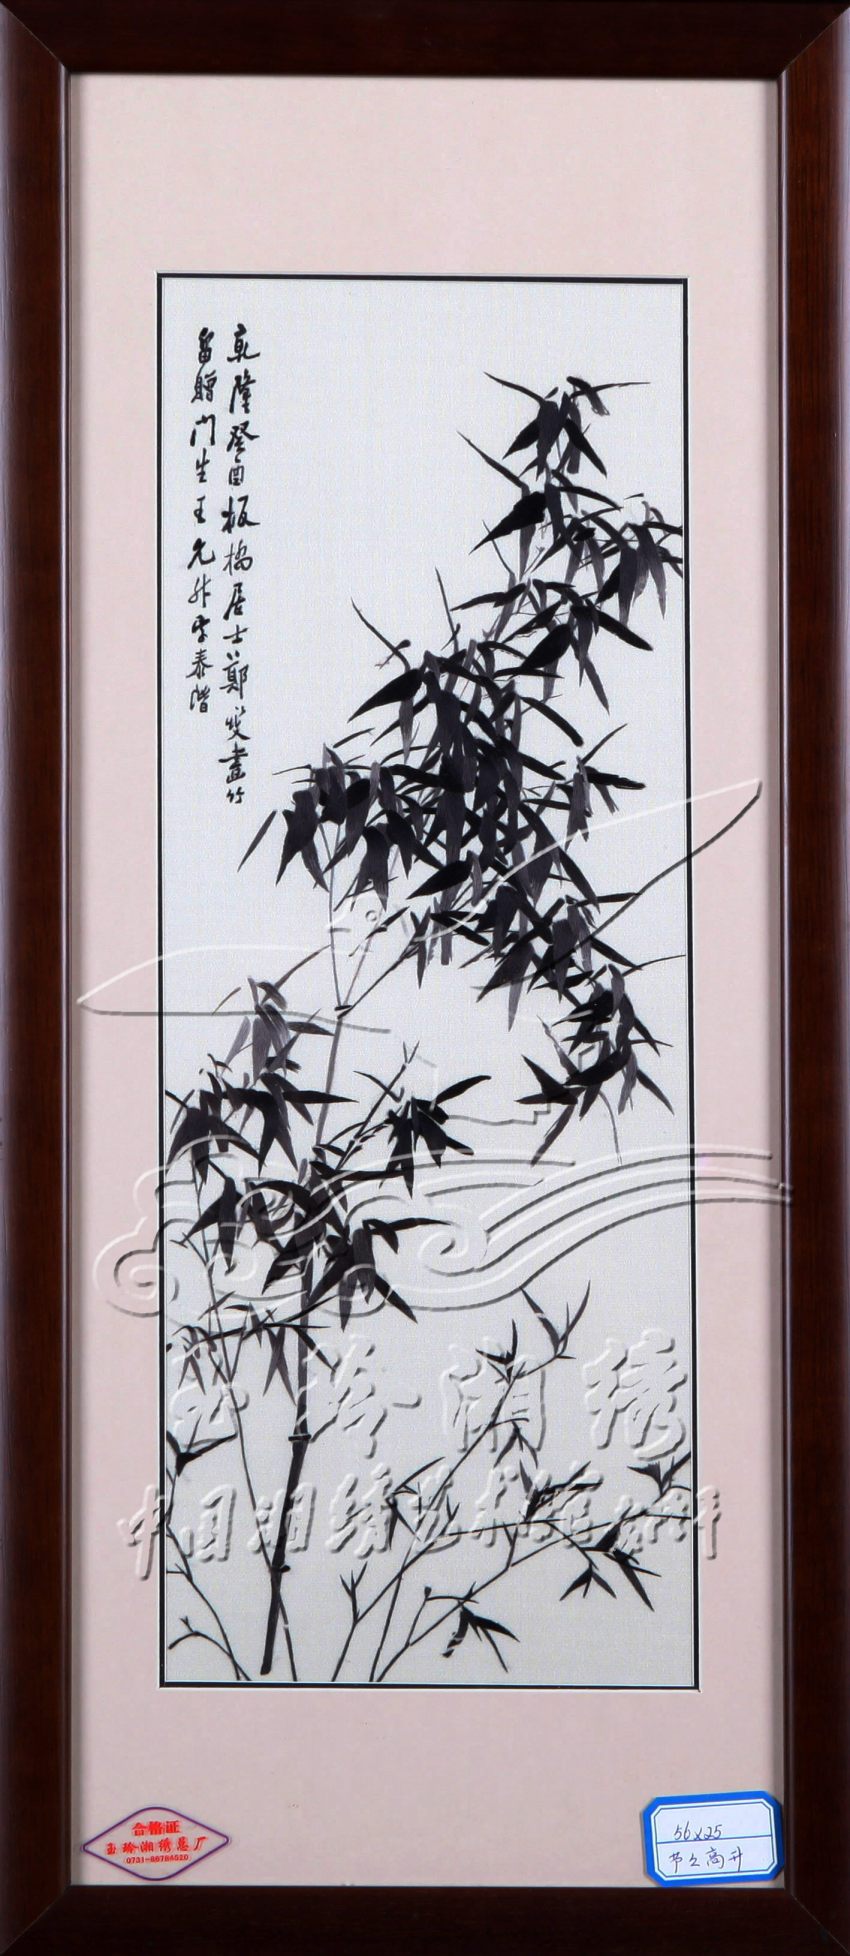 乾隆癸酉板橋居士鄭燮畫竹
留贈門生王允升字泰階
湘绣
中国湘绣艺术馆
合格证
玉玲湘绣总厂
0731-86784520
56x25
节之高升